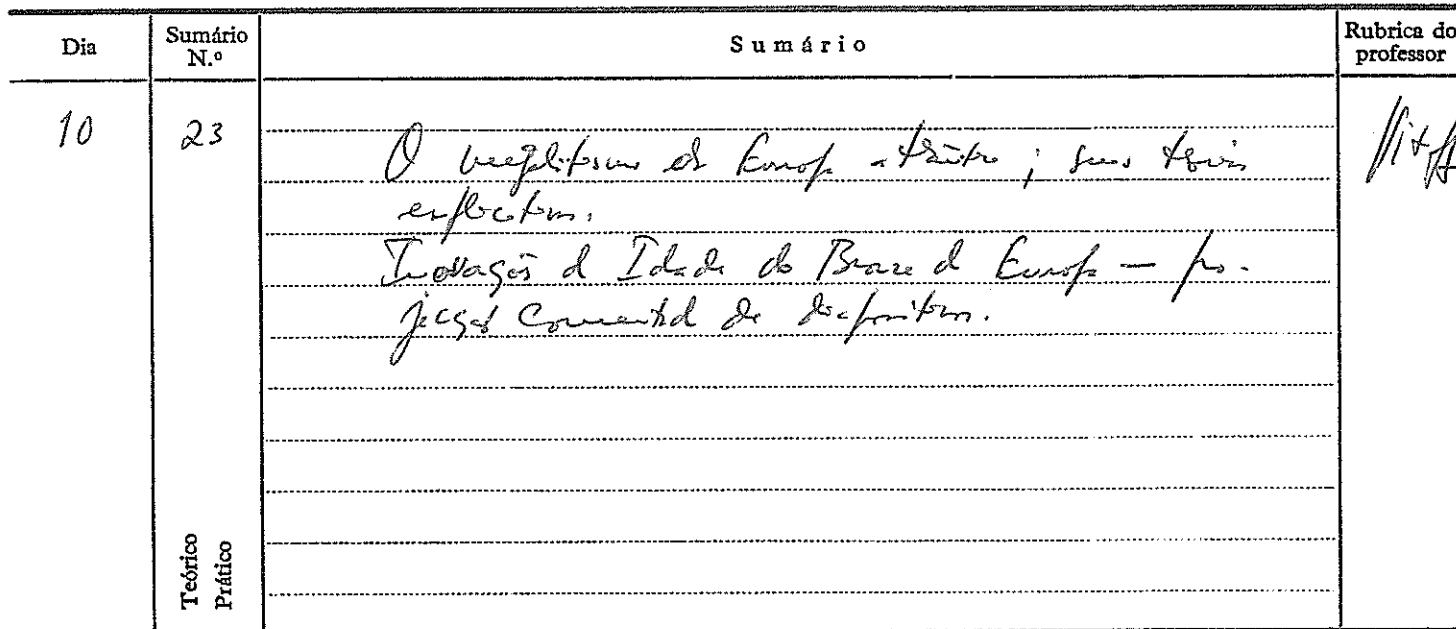 Dia
Sumário N.º
Sumário
Rubrica do professor
10
23
O megalitismo da Europa atlântica; suas
Inovações da Idade do Bronze da Europa — pro-
jecção de diapositivos.
Teórico
Prático